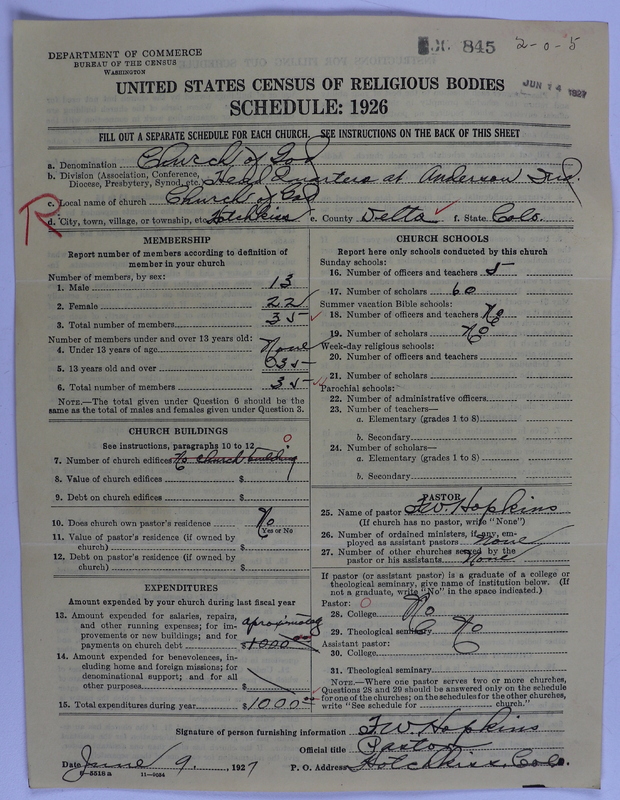 DEPARTMENT OF COMMERCE
BUREAU OF THE CENSUS
WASHINGTON
845 2-0-5
JUN 14 1927
UNITED STATES CENSUS OF RELIGIOUS BODIES
SCHEDULE: 1926
FILL OUT A SEPARATE SCHEDULE FOR EACH CHURCH. SEE INSTRUCTIONS ON THE BACK OF THIS SHEET
a. Denomination Church of God
b. Division (Association, Conference, Diocese, Presbytery, Synod, etc. Head Quarters at Anderson Ind.
c. Local name of church Church of God
R
d. City, town, village, or township, etc. Hotchkiss e. County Delta f. State Colo.
MEMBERSHIP
Report number of members according to definition of
member in your church
Number of members, by sex:
1. Male 13
2. Female 22
3. Total number of members 35
Number of members under and over 13 years old:
4. Under 13 years of age None
5. 13 years old and over 35
6. Total number of members 35
NOTE.—The total given under Question 6 should be
same as the total of males and females given under Question 3.
CHURCH BUILDINGS
See instructions, paragraphs 10 to 12
0
7. Number of church edifices No church building
8. Value of church edifices $
9. Debt on church edifices $
10. Does church own pastor's residence No
(Yes or No)
11. Value of pastor's residence (if owned by
church) $
12. Debt on pastor's residence (if owned by
church) $
EXPENDITURES
Amount expended by your church during last fiscal year
13. Amount expended for salaries, repairs,
and other running expenses; for im-
provements or new buildings; and for
payments on church debt $1000 00
14. Amount expended for benevolences, in-
cluding home and foreign missions; for
denominational support; and for all
other purposes $
15. Total expenditures during year $1000 00
CHURCH SCHOOLS
Report here only schools conducted by this church
Sunday schools:
16. Number of officers and teachers 5
17. Number of scholars 60
Summer vacation Bible schools:
18. Number of officers and teachers No
19. Number of scholars No
Week-day religious schools:
20. Number of officers and teachers
21. Number of scholars
Parochial schools:
22. Number of administrative officers
23. Number of teachers—
a. Elementary (grades 1 to 8)
b. Secondary
24. Number of scholars—
a. Elementary (grades 1 to 8)
b. Secondary
PASTOR
25. Name of pastor F.W. Hopkins
(If church has no pastor, write "None")
26. Number of ordained ministers, if any, em-
ployed as assistant pastors None
27. Number of other churches served by the
pastor or his assistants None
If pastor (or assistant pastor) is a graduate of a college or
theological seminary, give name of institution below. (If
not a graduate, write "No" in the space indicated.)
Pastor: 0
28. College No
29. Theological seminary No
Assistant pastor:
30. College
31. Theological seminary
NOTE.—Where one pastor serves two or more churches,
Questions 28 and 29 should be answered only on the schedule
for one of the churches; on the schedules for the other churches,
write "See schedule for church."
Signature of person furnishing information F. W. Hopkins
Official title Pastor
Date June 9, 1927 P. O. Address Hotchkiss, Colo.
11-9034